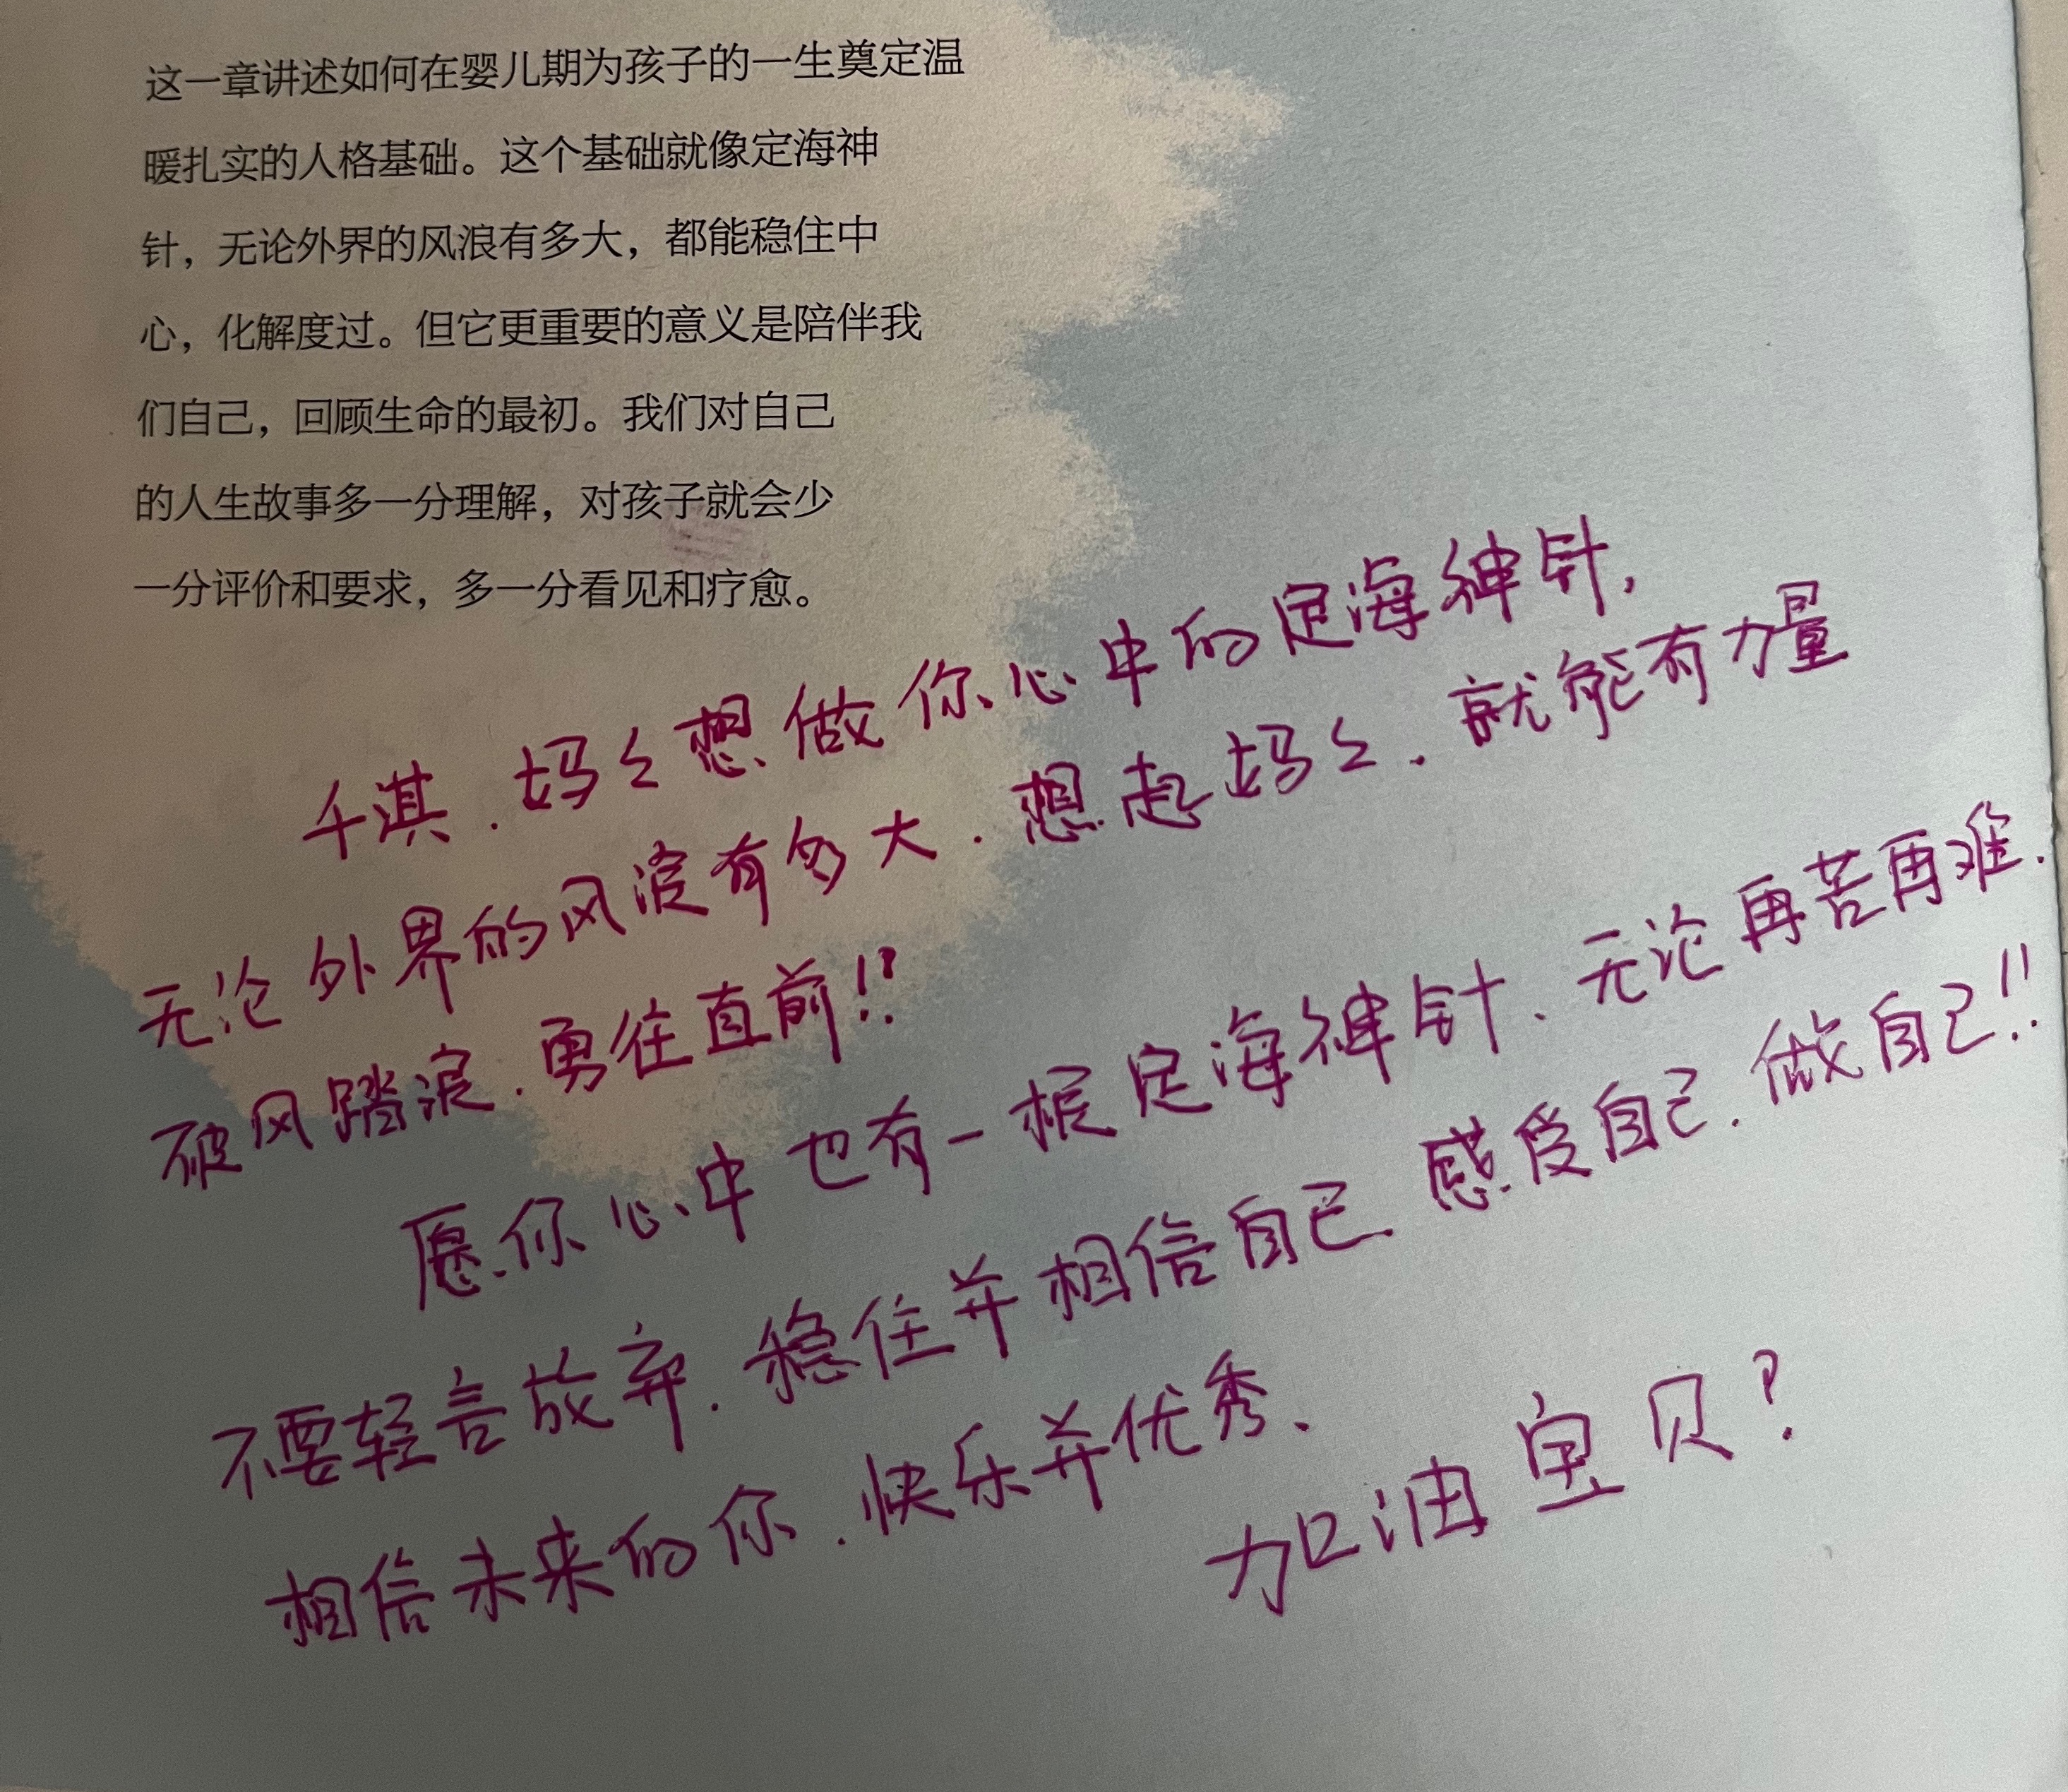 这一章讲述如何在婴儿期为孩子的一生奠定温
暖扎实的人格基础。这个基础就像定海神
针，无论外界的风浪有多大，都能稳住中
心，化解度过。但它更重要的意义是陪伴我
们自己，回顾生命的最初。我们对自己
的人生故事多一分理解，对孩子就会少
一分评价和要求，多一分看见和疗愈。
千淇.妈々想做你心中的定海神针,
无论外界的风浪有多大.想起妈々.就能有力量
破风踏浪.勇往直前!!
愿你心中也有一根定海神针、无论再苦再难.
不要轻言放弃.稳住并相信自己.感受自己.做自己!!
相信未来的你.快乐并优秀、
加油宝贝?